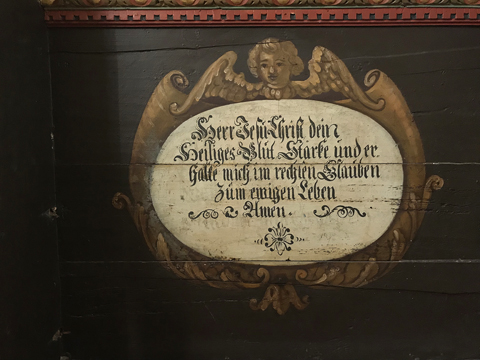 Herr Jesu Christ dein
Heiliges Blut Starke und er
halte mich im rechten Glauben
Zum ewigen Leben
Amen.